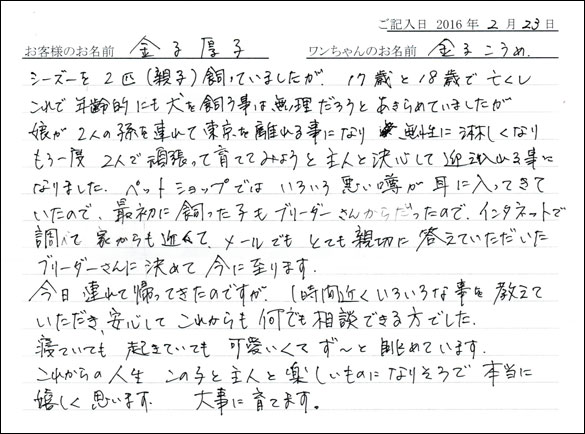 ご記入日 2016年 2月 23日
お客様のお名前 金子 厚子 ワンちゃんのお名前 金子こうめ
シーズーを2匹(親子)飼っていましたが、17歳と18歳で亡くし
これで年齢的にも犬を飼う事は無理だろうとあきらめていましたが
娘が2人の孫を連れて東京を離れる事になり 無性に淋しくなり
もう一度 2人で頑張って育ててみようと主人と決心して迎え入れる事に
なりました。ペットショップではいろいろ悪い噂が耳に入ってきて
いたので、最初に飼った子もブリーダーさんからだったので、インタネットで
調べて家からも近くて、メールでもとても親切に答えていただいた
ブリーダーさんに決めて今に至ります。
今日連れて帰ってきたのですが、1時間近くいろいろな事を教えて
いただき、安心してこれからも何でも相談できる方でした。
寝ていても起きていても可愛いくてず〜と眺めています。
これからの人生 この子と主人と楽しいものになりそうで本当に
嬉しく思います。 大事に育てます。